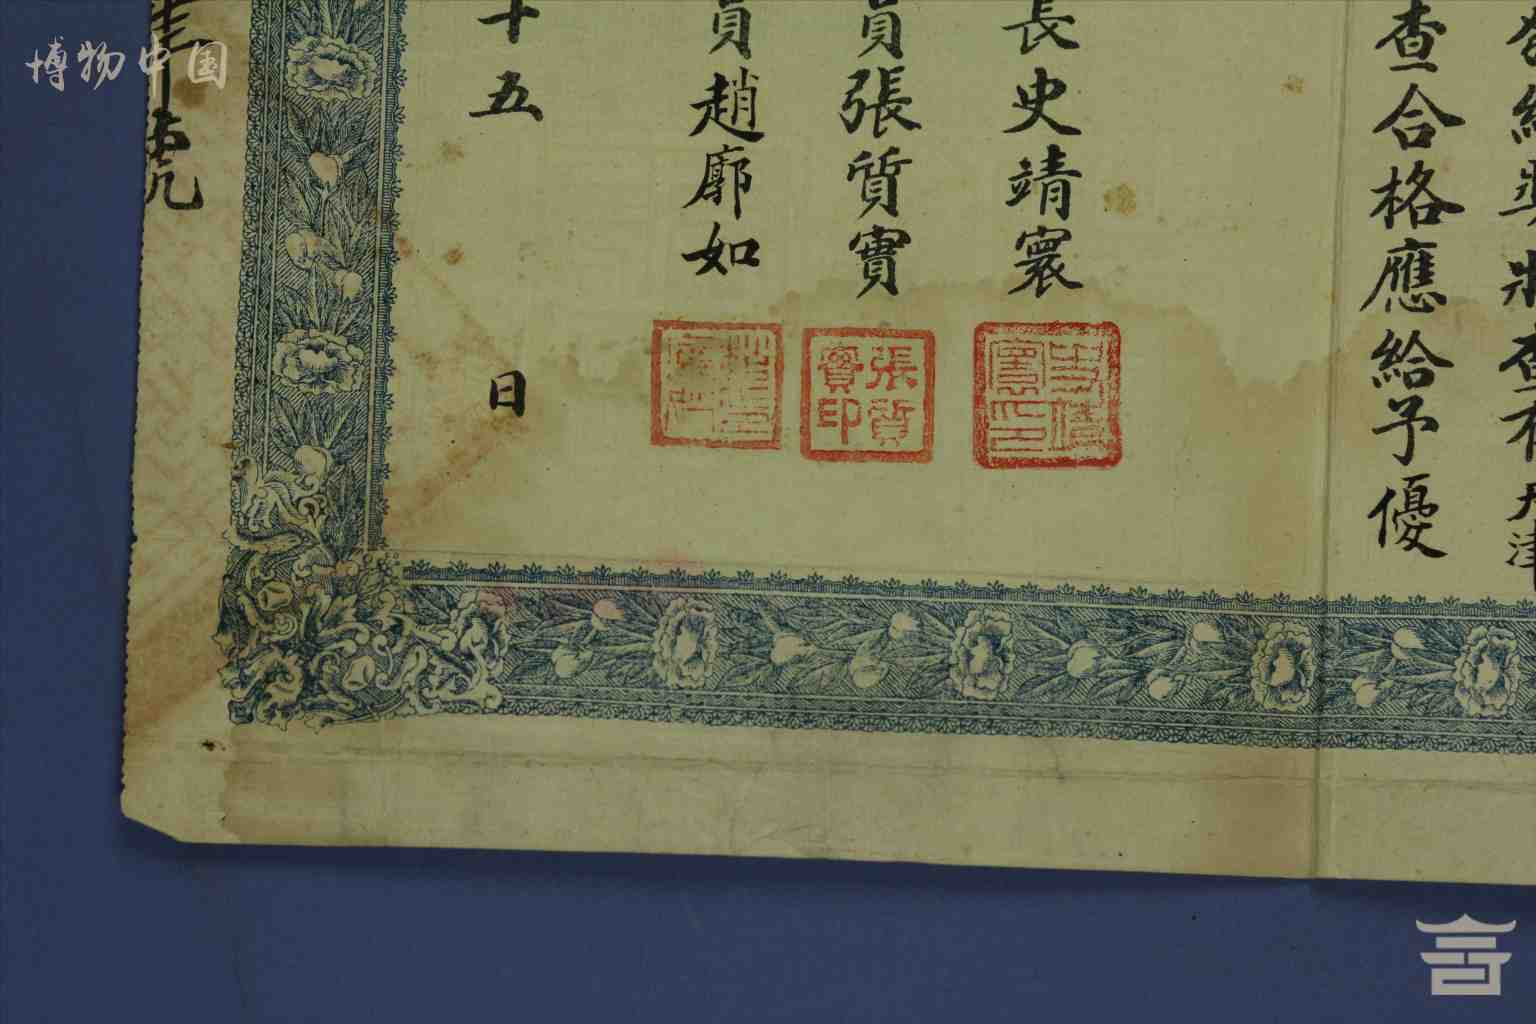 博物中国
給獎狀查有天津
查合格應給予優
長史靖寰
員張質實
員趙廓如
十五
日
號
張質實印